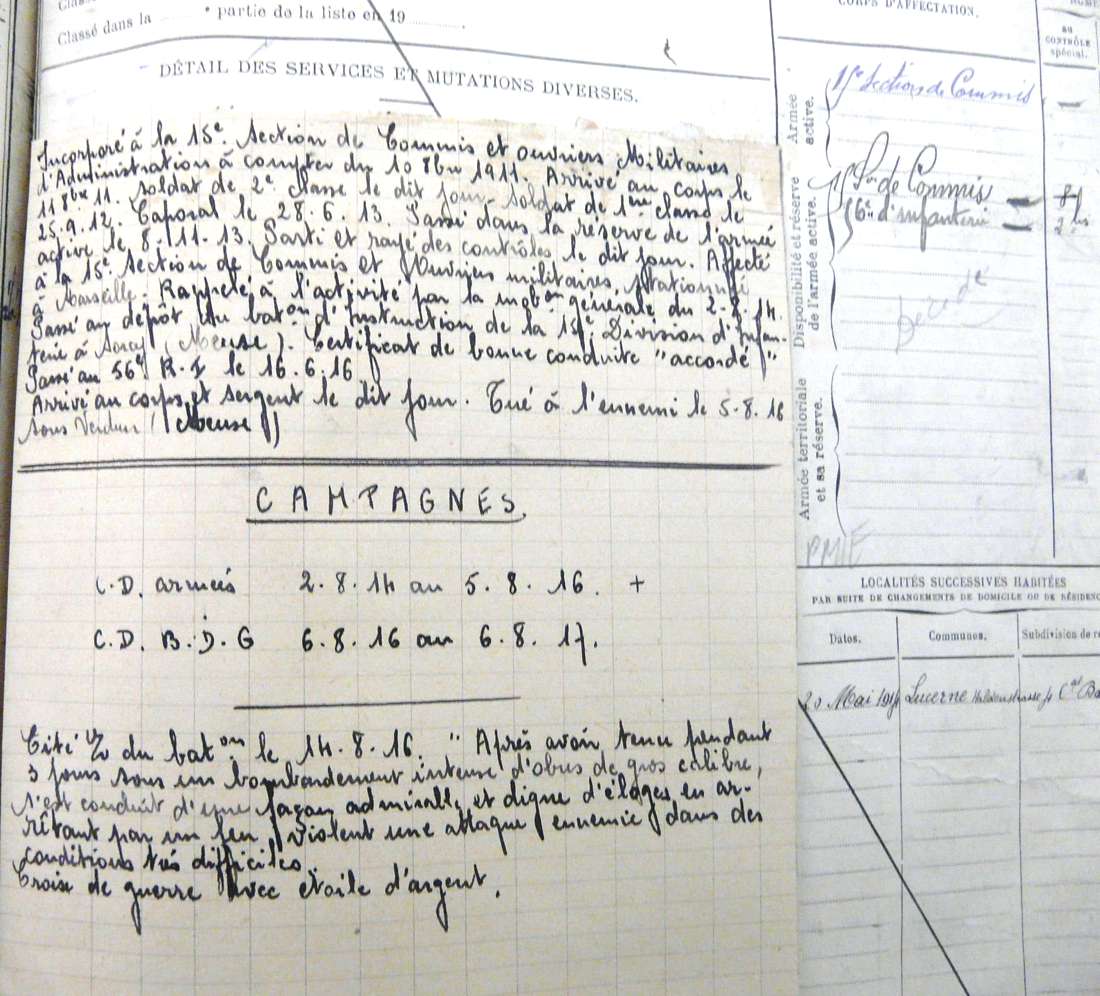 Classé dans la ... e partie de la liste en 19 ...
DÉTAIL DES SERVICES ET MUTATIONS DIVERSES.
Incorporé à la 15e Section de Commis et ouvriers Militaires
d'Administration à compter du 10 8bre 1911. Arrivé au corps le
11 8bre 11. Soldat de 2e classe le dit jour. Soldat de 1ère classe le
25.9.12. Caporal le 28.6.13. Passé dans la réserve de l'armée
active le 8.11.13. Parti et rayé des contrôles le dit jour. Affecté
à la 15e Section de Commis et Ouvriers militaires, stationnée
à Marseille. Rappelé à l'activité par la mobon générale du 2.8.14.
Passé au dépôt du baton d'Instruction de la 15e Division d'Infan-
terie à Sorcy (Meuse). Certificat de bonne conduite "accordé"
Passé au 56e R.I le 16.6.16
Arrivé au corps et sergent le dit jour. Tué à l'ennemi le 5.8.16
sous Verdun (Meuse)
CAMPAGNES.
C.D. armées 2.8.14 au 5.8.16. +
C.D. B.D.G 6.8.16 au 6.8.17.
Cité du baton le 14.8.16. "Après avoir tenu pendant
3 jours sous un bombardement intense d'obus de gros calibre,
s'est conduit d'une façon admirable et digne d'éloges en ar-
rêtant par un feu violent une attaque ennemie dans des
conditions très difficiles.
Croix de guerre avec étoile d'argent.
CORPS D'AFFECTATION.
au
CONTRÔLE
spécial.
Armée
active.
15e Section de Commis
Disponibilité et réserve
de l'armée active.
15e Son de Commis
56e d'infanterie
décédé
Armée territoriale
et sa réserve.
LOCALITÉS SUCCESSIVES HABITÉES
PAR SUITE DE CHANGEMENTS DE DOMICILE OU DE RÉSIDENC
Dates.
Communes.
Subdivision de r
20 Mai 1914
Lucerne Haldenstrasse 4